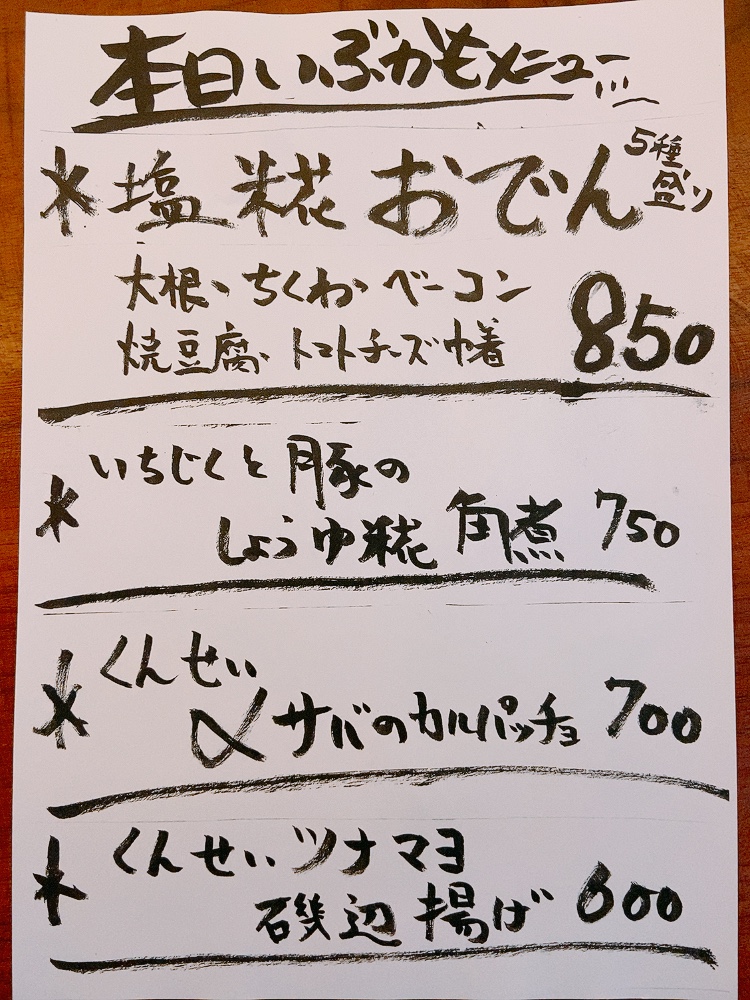 本日いぶかもメニュー
* 塩糀 おでん 5種盛り
大根、ちくわ、ベーコン
焼豆腐、トマトチーズ巾着 850
* いちじくと豚の
しょうゆ糀 角煮 750
* くんせい
〆サバのカルパッチョ 700
* くんせいツナマヨ
磯辺揚げ 600